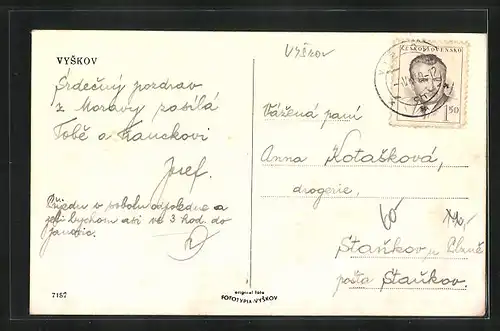 VYŠKOV
Srdečný pozdrav
z Moravy zasílá
Tobě a Hanckovi
Josef.
Přijedu v sobotu odpoledne a
jeli bychom asi ve 3 hod. do
Janovic.
7187
original foto
FOTOTYPIA-VYŠKOV
Vyškov
ČESKOSLOVENSKO
1.50
Vážená paní
Anna Kotašková,
drogerie,
Staňkov,
pošta Staňkov.
60